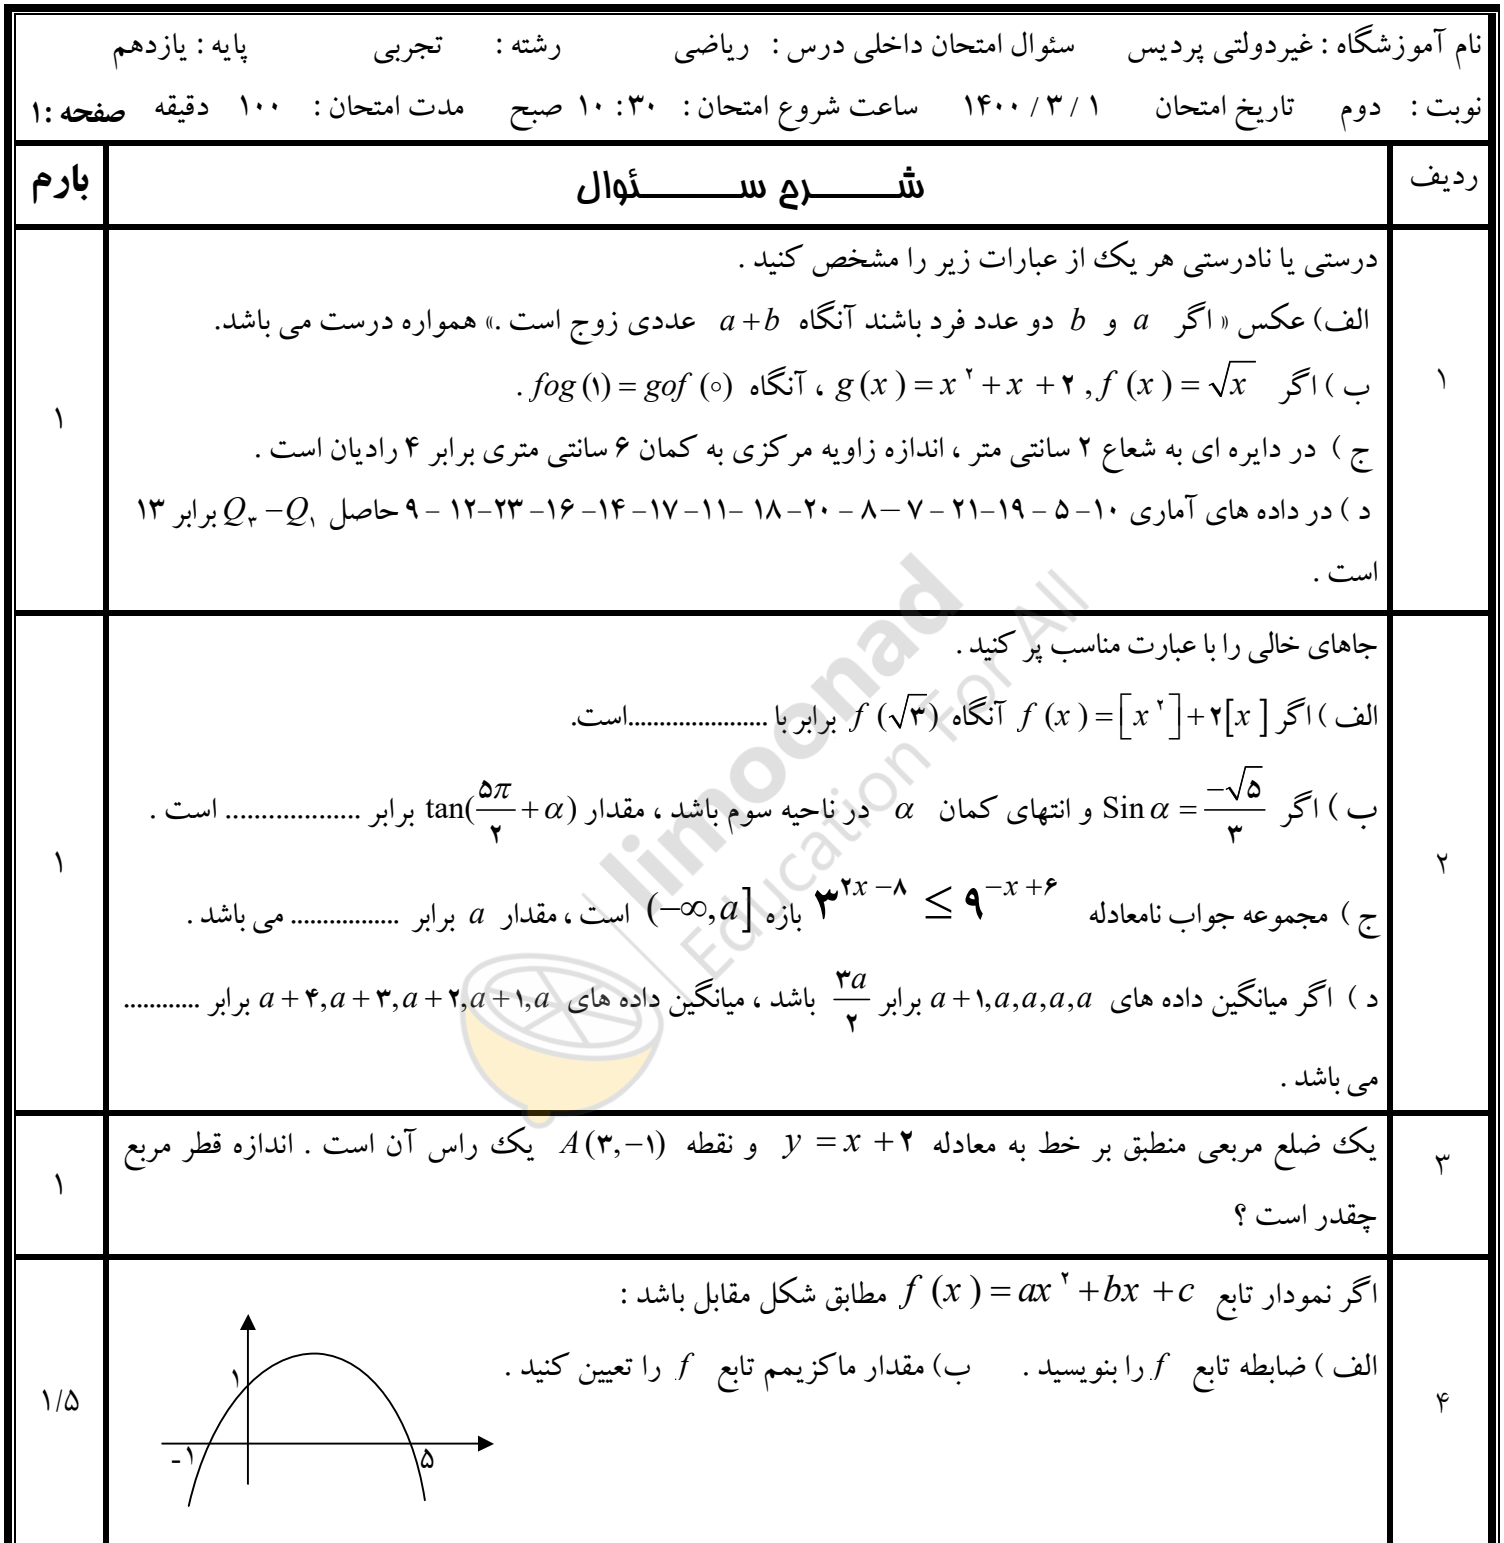 نام آموزشگاه : غیردولتی پردیس سئوال امتحان داخلی درس : ریاضی رشته : تجربی پایه : یازدهم
نوبت : دوم تاریخ امتحان ۱ / ۳ / ۱۴۰۰ ساعت شروع امتحان : ۳۰ : ۱۰ صبح مدت امتحان : ۱۰۰ دقیقه صفحه :۱
ردیف شـــــرح ســـــئوال بارم
درستی یا نادرستی هر یک از عبارات زیر را مشخص کنید .
الف) عکس « اگر a و b دو عدد فرد باشند آنگاه a+b عددی زوج است .» همواره درست می باشد.
ب ) اگر g(x) = x^۲ + x + ۲ , f(x) = √x ، آنگاه fog(۱) = gof(۰) .
۱ ۱
ج ) در دایره ای به شعاع ۲ سانتی متر ، اندازه زاویه مرکزی به کمان ۶ سانتی متری برابر ۴ رادیان است .
د ) در داده های آماری ۱۰- ۵ - ۱۹-۲۱- ۷ - ۸ - ۲۰- ۱۸ -۱۱- ۱۷- ۱۴- ۱۶- ۲۳-۱۲ - ۹ حاصل Q_۳ - Q_۱ برابر ۱۳
است .
جاهای خالی را با عبارت مناسب پر کنید .
الف ) اگر f(x) = [x^۲] + ۲[x] آنگاه f(√۳) برابر با ......................است.
ب ) اگر Sin α = -√۵/۳ و انتهای کمان α در ناحیه سوم باشد ، مقدار tan(۵π/۲ + α) برابر ................... است .
۲ ۱
ج ) مجموعه جواب نامعادله ۳^(۲x-۸) ≤ ۹^(-x+۶) بازه (-∞,a] است ، مقدار a برابر ................. می باشد .
د ) اگر میانگین داده های a+۱,a,a,a,a برابر ۳a/۲ باشد ، میانگین داده های a+۴,a+۳,a+۲,a+۱,a برابر ............
می باشد .
limoonad
Education For All
یک ضلع مربعی منطبق بر خط به معادله y = x + ۲ و نقطه A(۳,-۱) یک راس آن است . اندازه قطر مربع
۳ ۱
چقدر است ؟
اگر نمودار تابع f(x) = ax^۲ + bx + c مطابق شکل مقابل باشد :
الف ) ضابطه تابع f را بنویسید . ب) مقدار ماکزیمم تابع f را تعیین کنید .
۴ ۱/۵
۱
-۱ ۵